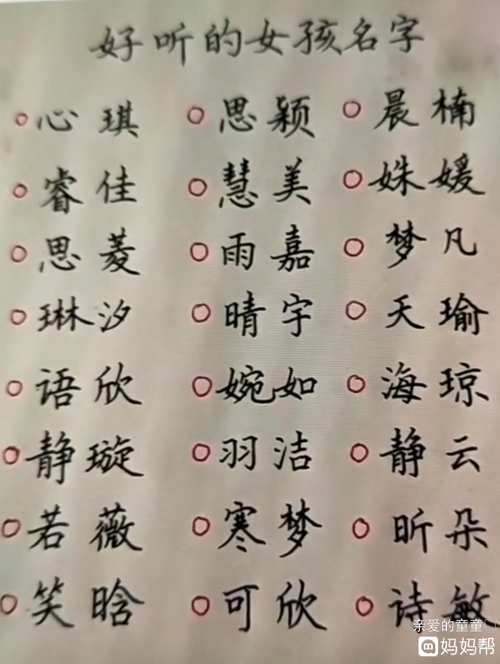 好听的女孩名字
心琪 思颖 晨楠
睿佳 慧美 姝媛
思菱 雨嘉 梦凡
琳汐 晴宇 天瑜
语欣 婉如 海琼
静璇 羽洁 静云
若薇 寒梦 昕朵
笑晗 可欣 诗敏
亲爱的童童
妈妈帮